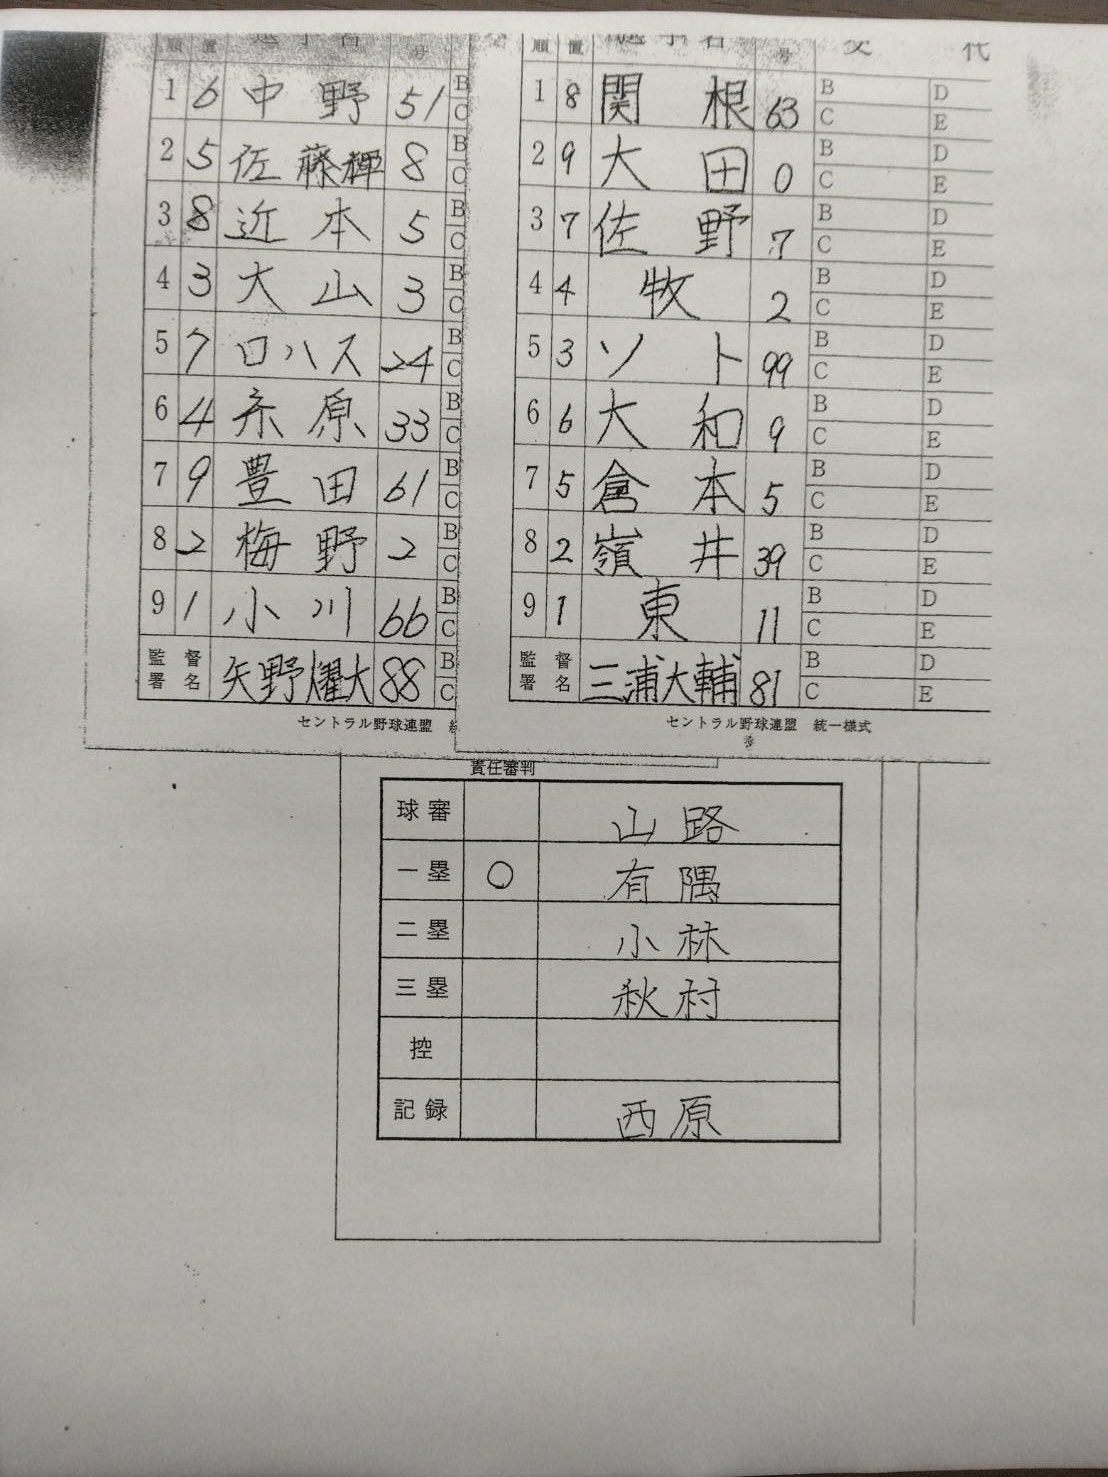 順 置 選手名 号
1 6 中野 51 B C
2 5 佐藤輝 8 B C
3 8 近本 5 B C
4 3 大山 3 B C
5 7 ロハス 24 B C
6 4 糸原 33 B C
7 9 豊田 61 B C
8 2 梅野 2 B C
9 1 小川 66 B C
監督署名 矢野燿大 88 B C
セントラル野球連盟
順 置 選手名 号 交代
1 8 関根 63 B C D E
2 9 大田 0 B C D E
3 7 佐野 7 B C D E
4 4 牧 2 B C D E
5 3 ソト 99 B C D E
6 6 大和 9 B C D E
7 5 倉本 5 B C D E
8 2 嶺井 39 B C D E
9 1 東 11 B C D E
監督署名 三浦大輔 81 B C D E
セントラル野球連盟 統一様式
責任審判
球審 山路
一塁 ○ 有隅
二塁 小林
三塁 秋村
控
記録 西原